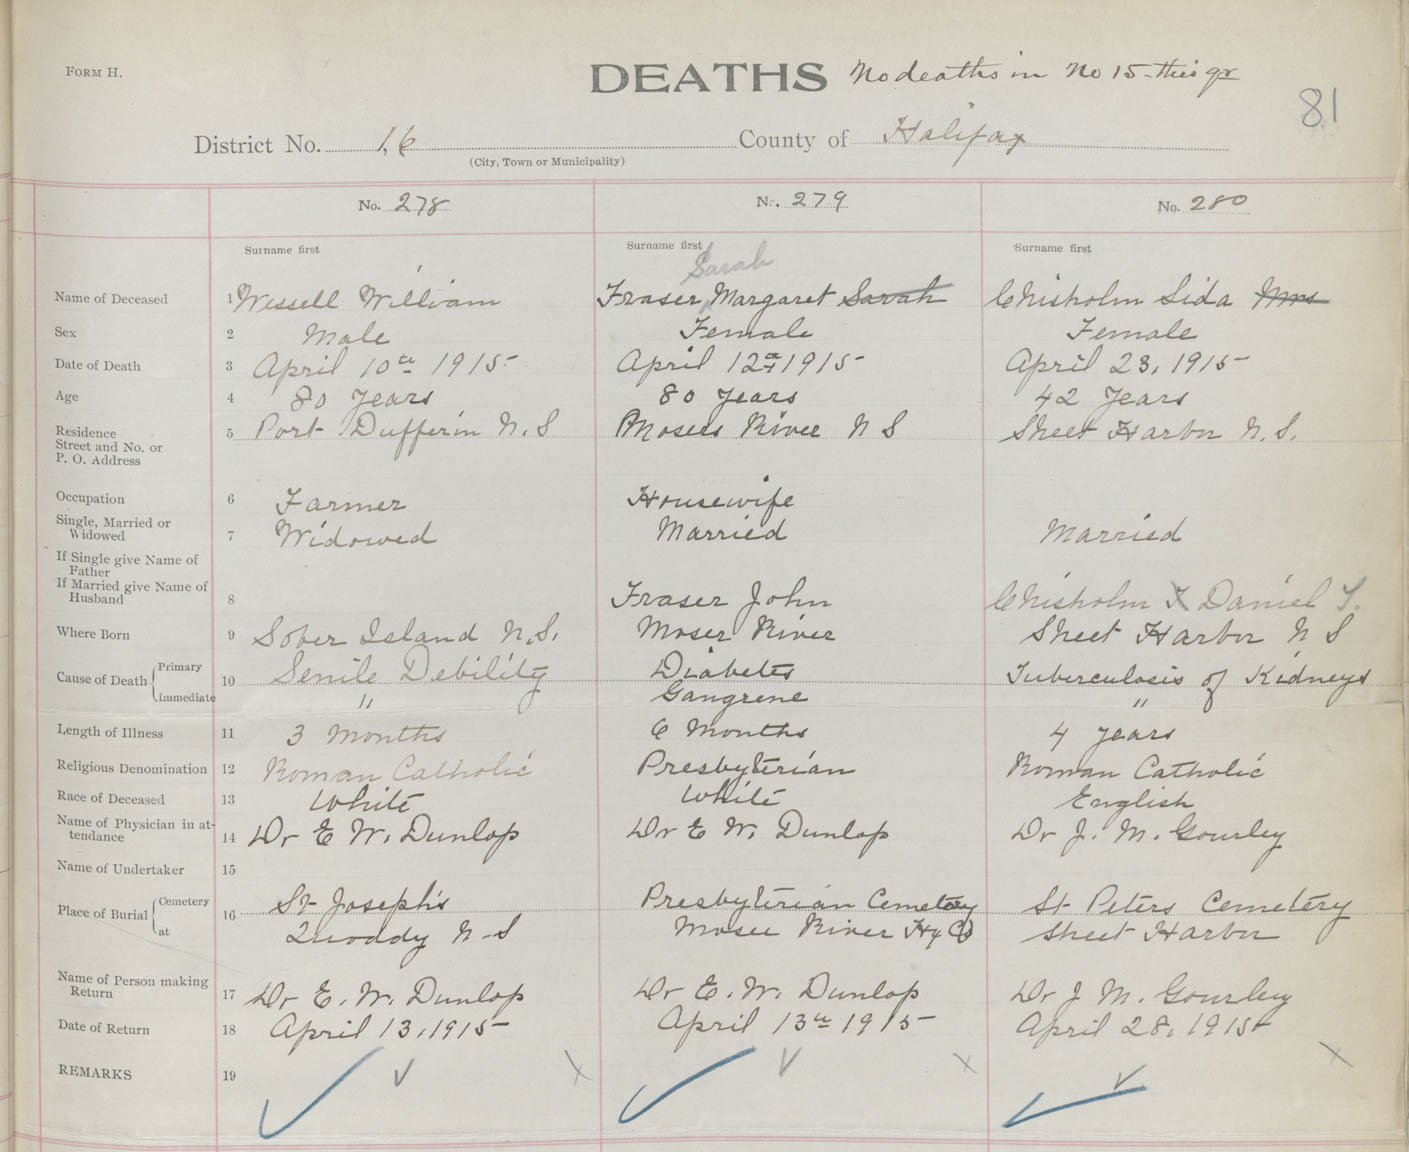 FORM H.
DEATHS No deaths in No 15 - this qr
81
District No. 16 County of Halifax
(City, Town or Municipality)
No. 278 No. 279 No. 280
Surname first Surname first Surname first
Sarah
Name of Deceased 1 Wessell William Fraser Margaret Sarah Chisholm Sida Mrs
Sex 2 Male Female Female
Date of Death 3 April 10th 1915 April 12th 1915 April 23, 1915
Age 4 80 Years 80 Years 42 Years
Residence
Street and No. or 5 Port Dufferin N.S Mosers River N S Sheet Harbor N.S.
P. O. Address
Occupation 6 Farmer Housewife
Single, Married or
Widowed 7 Widowed Married Married
If Single give Name of
Father
If Married give Name of
Husband 8 Fraser John Chisholm Daniel T.
Where Born 9 Sober Island N.S. Moser River Sheet Harbor N S
Cause of Death Primary 10 Senile Debility Diabetes Tuberculosis of Kidneys
Immediate " Gangrene "
Length of Illness 11 3 Months 6 Months 4 years
Religious Denomination 12 Roman Catholic Presbyterian Roman Catholic
Race of Deceased 13 White White English
Name of Physician in at-
tendance 14 Dr E W. Dunlop Dr E W. Dunlop Dr J. M. Gourley
Name of Undertaker 15
Place of Burial Cemetery 16 St Joseph's Presbyterian Cemetery St Peters Cemetery
at Quoddy N-S Moser River Hx Co Sheet Harbor
Name of Person making
Return 17 Dr E. W. Dunlop Dr E. W. Dunlop Dr J M. Gourley
Date of Return 18 April 13, 1915 April 13th 1915 April 28, 1915
REMARKS 19